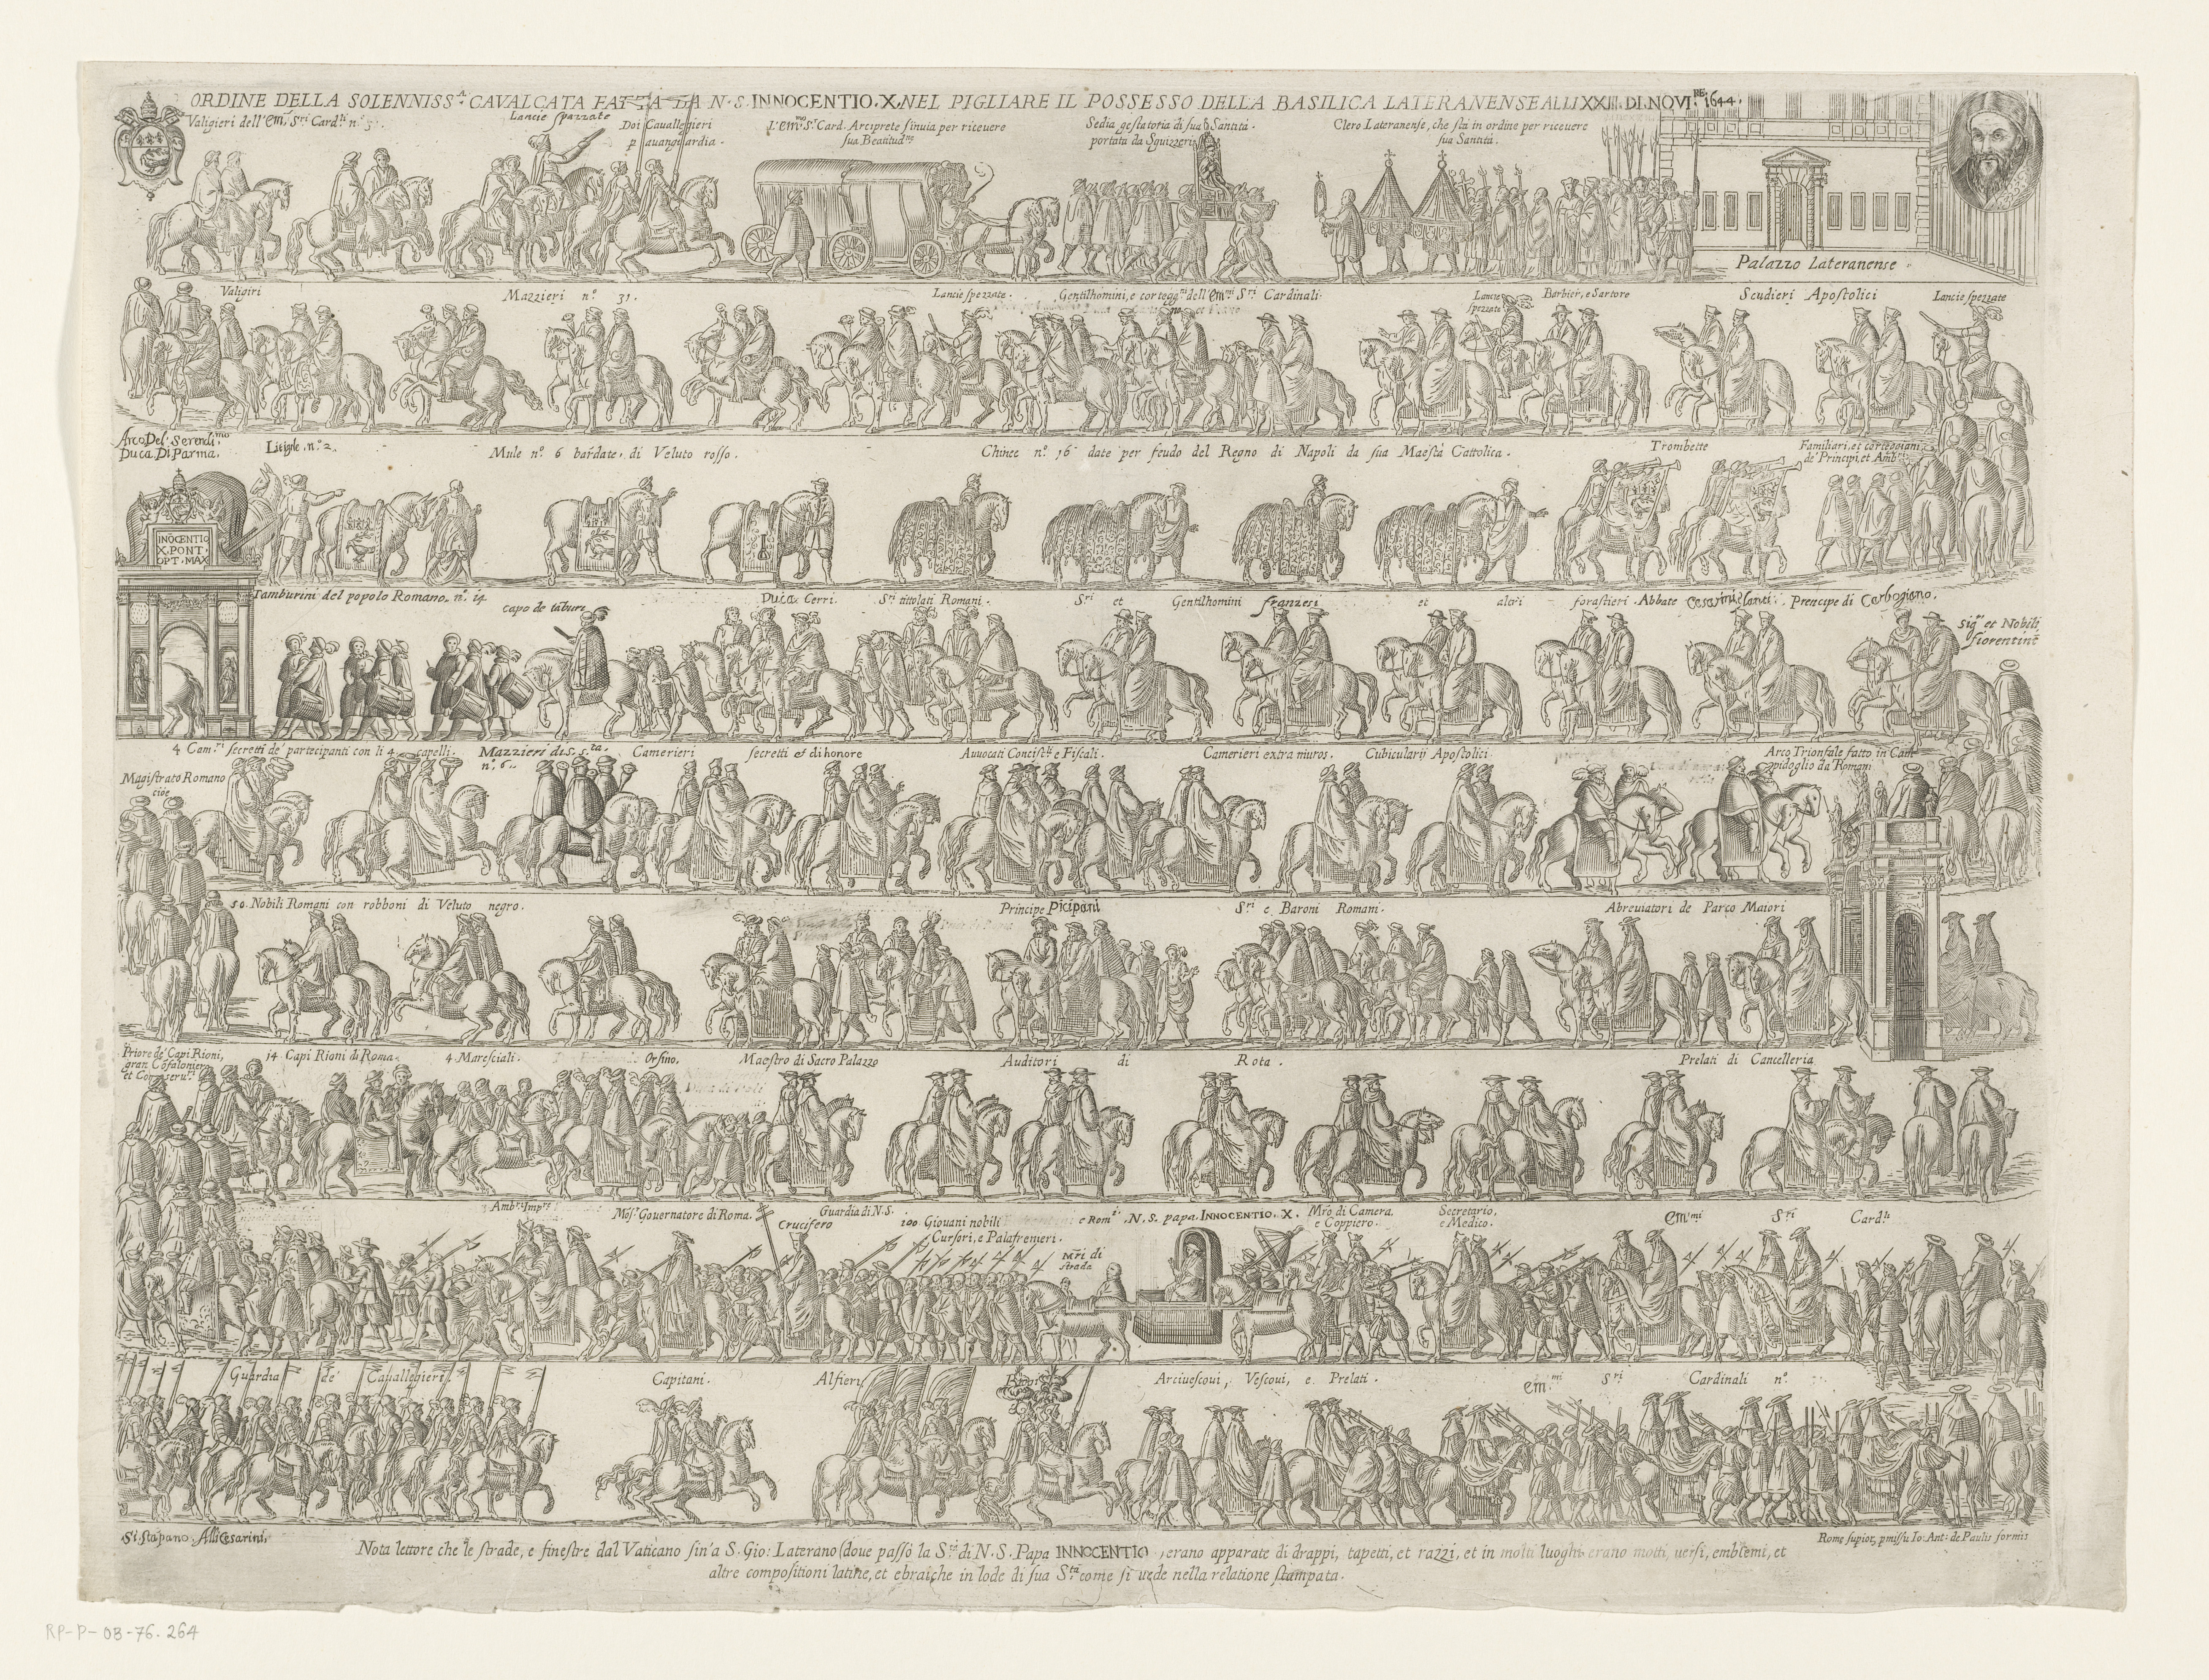 ORDINE DELLA SOLENNISS.A CAVALCATA FATTA DA N. S. INNOCENTIO. X. NEL PIGLIARE IL POSSESSO DELLA BASILICA LATERANENSE ALLI XXIII. DI NOVI.RE 1644.
Valigieri dell'Em.i S.ri Card.li n.o 5.
Lancie spezzate
Doi Cauallegieri
p auanguardia.
L'em.mo S.r Card. Arciprete s'inuia per riceuere
sua Beatitud.ne
Sedia gestatoria di sua Santità.
portata da Sguizzeri
Clero Lateranense, che stà in ordine per riceuere
sua Santità.
Palazzo Lateranense
Valigiri
Mazzieri n.o 31.
Lancie spezzate.
Gentilhomini, e cortegg.ni dell'Em.mi S.ri Cardinali.
Lancie
spezzate
Barbier, e Sartore
Scudieri Apostolici
Lancie spezzate
Arco Del Serenis.mo
Duca Di Parma.
Litighe. n.o 2.
Mule n.o 6 bardate. di Veluto rosso.
Chinee n.o 16 date per feudo del Regno di Napoli da sua Maestà Cattolica.
Trombette
Familiari, et corteggiani
de' Principi, et Amb.ri
INOCENTIO
X. PONT.
OPT. MAX
Tamburini del popolo Romano. n.o 14
capo de taburi
Duca Cerri.
S.ri titolati Romani.
S.ri et Gentilhomini franzesi et altri forastieri. Abbate Cesarini, Prencipe di Carbogiano.
Sig.ri et Nobili
fiorentini
Magistrato Romano
cioè
4 Cam.ri secretti de' partecipanti con li 4 capelli.
Mazzieri di S. S.ta.
n.o 6.
Camerieri secretti et di honore
Auuocati Concist.li e Fiscali.
Camerieri extra muros.
Cubicularij Apostolici
Arco Trionfale fatto in Cam
pidoglio da Romani
50. Nobili Romani con robboni di Veluto negro.
Principe Picipani
S.ri e Baroni Romani.
Abreuiatori de Parco Maiori
Priore de' Capi Rioni,
gran Cofalonier,
et Conseru.ri
14 Capi Rioni di Roma.
4 Maresciali.
Orsino.
Maestro di Sacro Palazzo
Auditori di Rota.
Prelati di Cancelleria
Amb.r Imp.re
Mõs.r Gouernatore di Roma.
Crucifero
Guardia di N. S.
100. Giouani nobili e Rom.i
Cursori, e Palafrenieri.
Mri di
strada
N. S. papa INNOCENTIO. X.
Mro di Camera
e Coppiero.
Secretario,
e Medico.
Em.mi S.ri Card.li
Guardia de' Cauallegieri.
Capitani.
Alfieri
Arciuescoui, Vescoui, e Prelati.
Em.mi S.ri Cardinali n.o
Si stãpano. Alli Cesarini.
Rome supior. pmissu Io: Ant: de Paulis formis
Nota lettore che le strade, e finestre dal Vaticano sin'a S. Gio: Laterano (doue passò la S.tà di N. S. Papa INNOCENTIO, erano apparate di drappi, tapetti, et razzi, et in molti luoghi erano motti, uersi, emblemi, et
altre compositioni latine, et ebraiche in lode di sua S.tà come si uede nella relatione stampata.
RP-P-OB-76.264